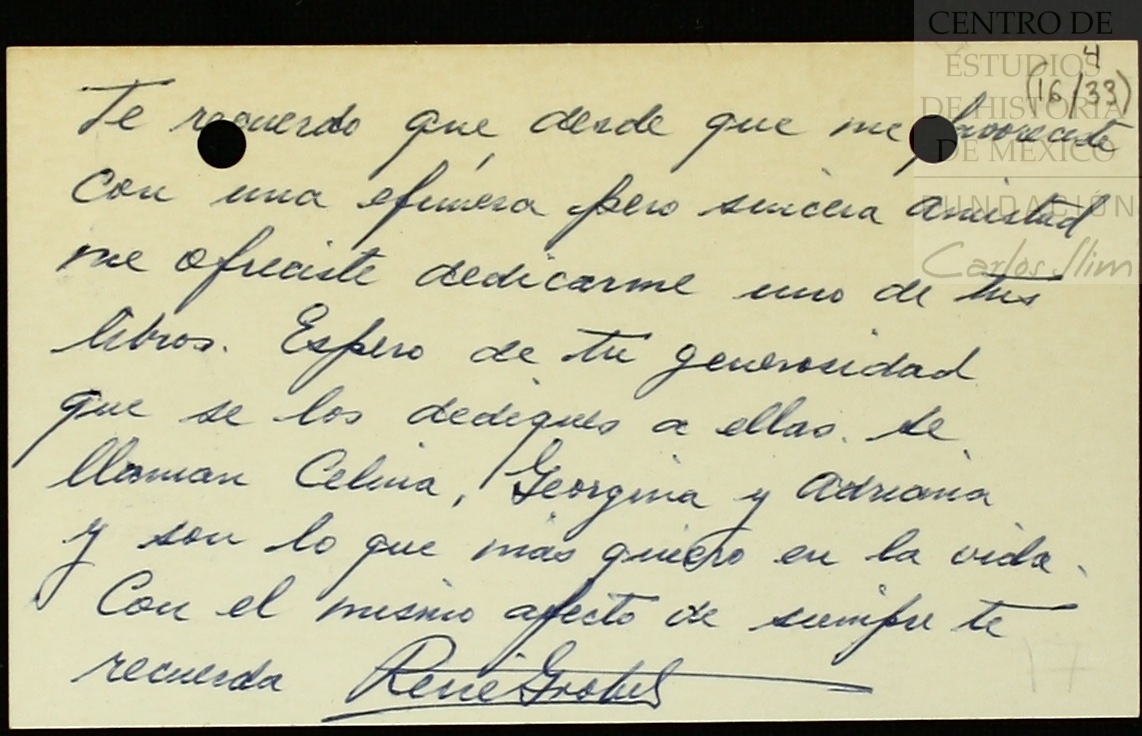 CENTRO DE
ESTUDIOS
DE HISTORIA
DE MEXICO
FUNDACION
Carlos Slim
4
(16/33)
Te recuerdo que, desde que me favoreciste
con una efimera pero sincera amistad
me ofreciste dedicarme uno de tus
libros. Espero de tu generosidad
que se los dediques a ellas. Se
llaman Celina, Georgina y Adriana
y son lo que más quiero en la vida.
Con el mismo afecto de siempre te
recuerda René
17